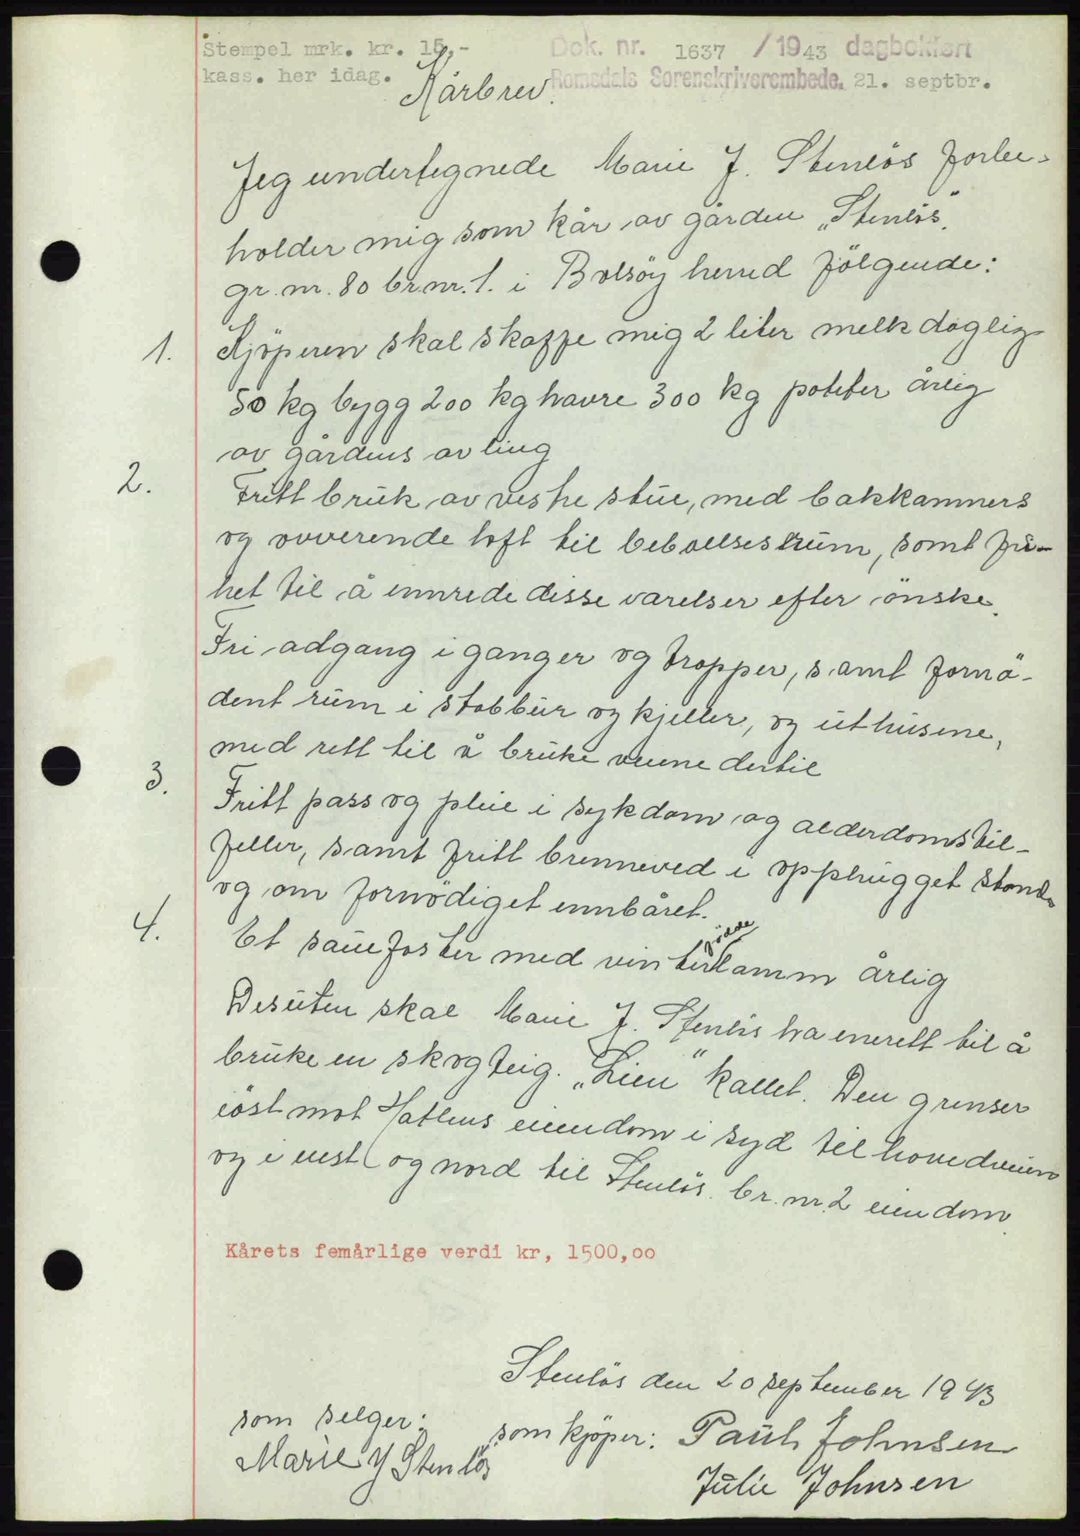 Stempel mrk. kr. 15,-
kass. her idag.
Dok. nr. 1637 / 1943 dagbokført
Romsdals Sorenskriverembede. 21. septbr.
Kårbrev.
Jeg undertegnede Marie J. Stenlös forbe-
holder mig som kår av gården „Stenlös"
gr. nr. 80 br nr. 1. i Bolsöy herred fölgende:
1. Kjöperen skal skaffe mig 2 liter melk daglig
50 kg bygg 200 kg havre 300 kg poteter årlig
av gårdens avling
2. Fritt bruk av vestre stue, med bakkammers
og ovverende loft til beboelsesrum, samt fri-
het til å innrede disse varelser efter önske.
Fri adgang i ganger og tropper, samt fornö-
dent rum i stabbur og kjeller, og uthusene,
med rett til å bruke veiene dertil
3. Fritt pass og pleie i sykdom og alderdomstil-
feller, samt fritt brenneved i opphugget stand
og om fornödiget innbåret.
4. Et sauefoster med vinterfödde lamm årlig
Desuten skal Marie J. Stenlös ha enerett til å
bruke en skogteig. „Lien" kallet. Den grenser
i öst mot Hatlens eiendom i syd til hovedveien
og i vest og nord til Stenlös br. nr. 2 eiendom.
Kårets femårlige verdi kr, 1500,00
Stenlös den 20 september 1943
som selger:
som kjöper: Paul Johnsen
Marie J Stenlös
Julie Johnsen